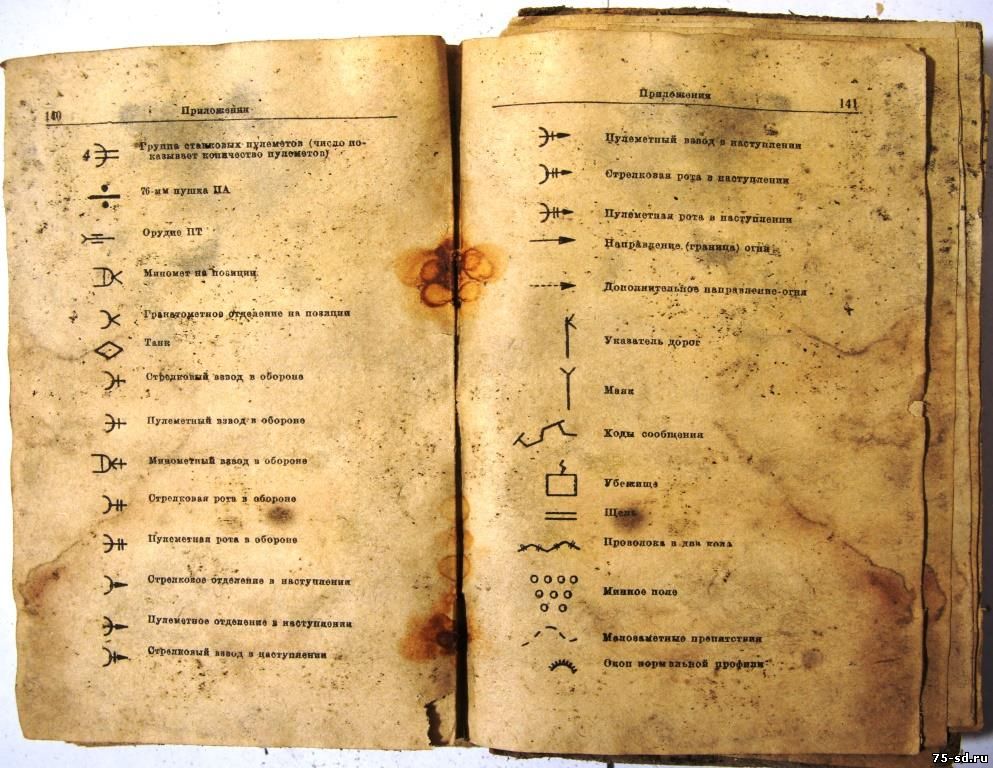 140
Приложения
4
Группа станковых пулеметов (число по-
казывает количество пулеметов)
76-мм пушка ПА
Орудие ПТ
Миномет на позиции
Гранатометное отделение на позиции
Танк
Стрелковый взвод в обороне
Пулеметный взвод в обороне
Минометный взвод в обороне
Стрелковая рота в обороне
Пулеметная рота в обороне
Стрелковое отделение в наступлении
Пулеметное отделение в наступлении
Стрелковый взвод в наступлении
Приложения
141
Пулеметный взвод в наступлении
Стрелковая рота в наступлении
Пулеметная рота в наступлении
Направление (граница) огня
Дополнительное направление огня
Указатель дорог
Маяк
Ходы сообщения
Убежища
Щель
Проволока в два кола
Минное поле
Малозаметные препятствия
Окоп нормальной профили
75-sd.ru